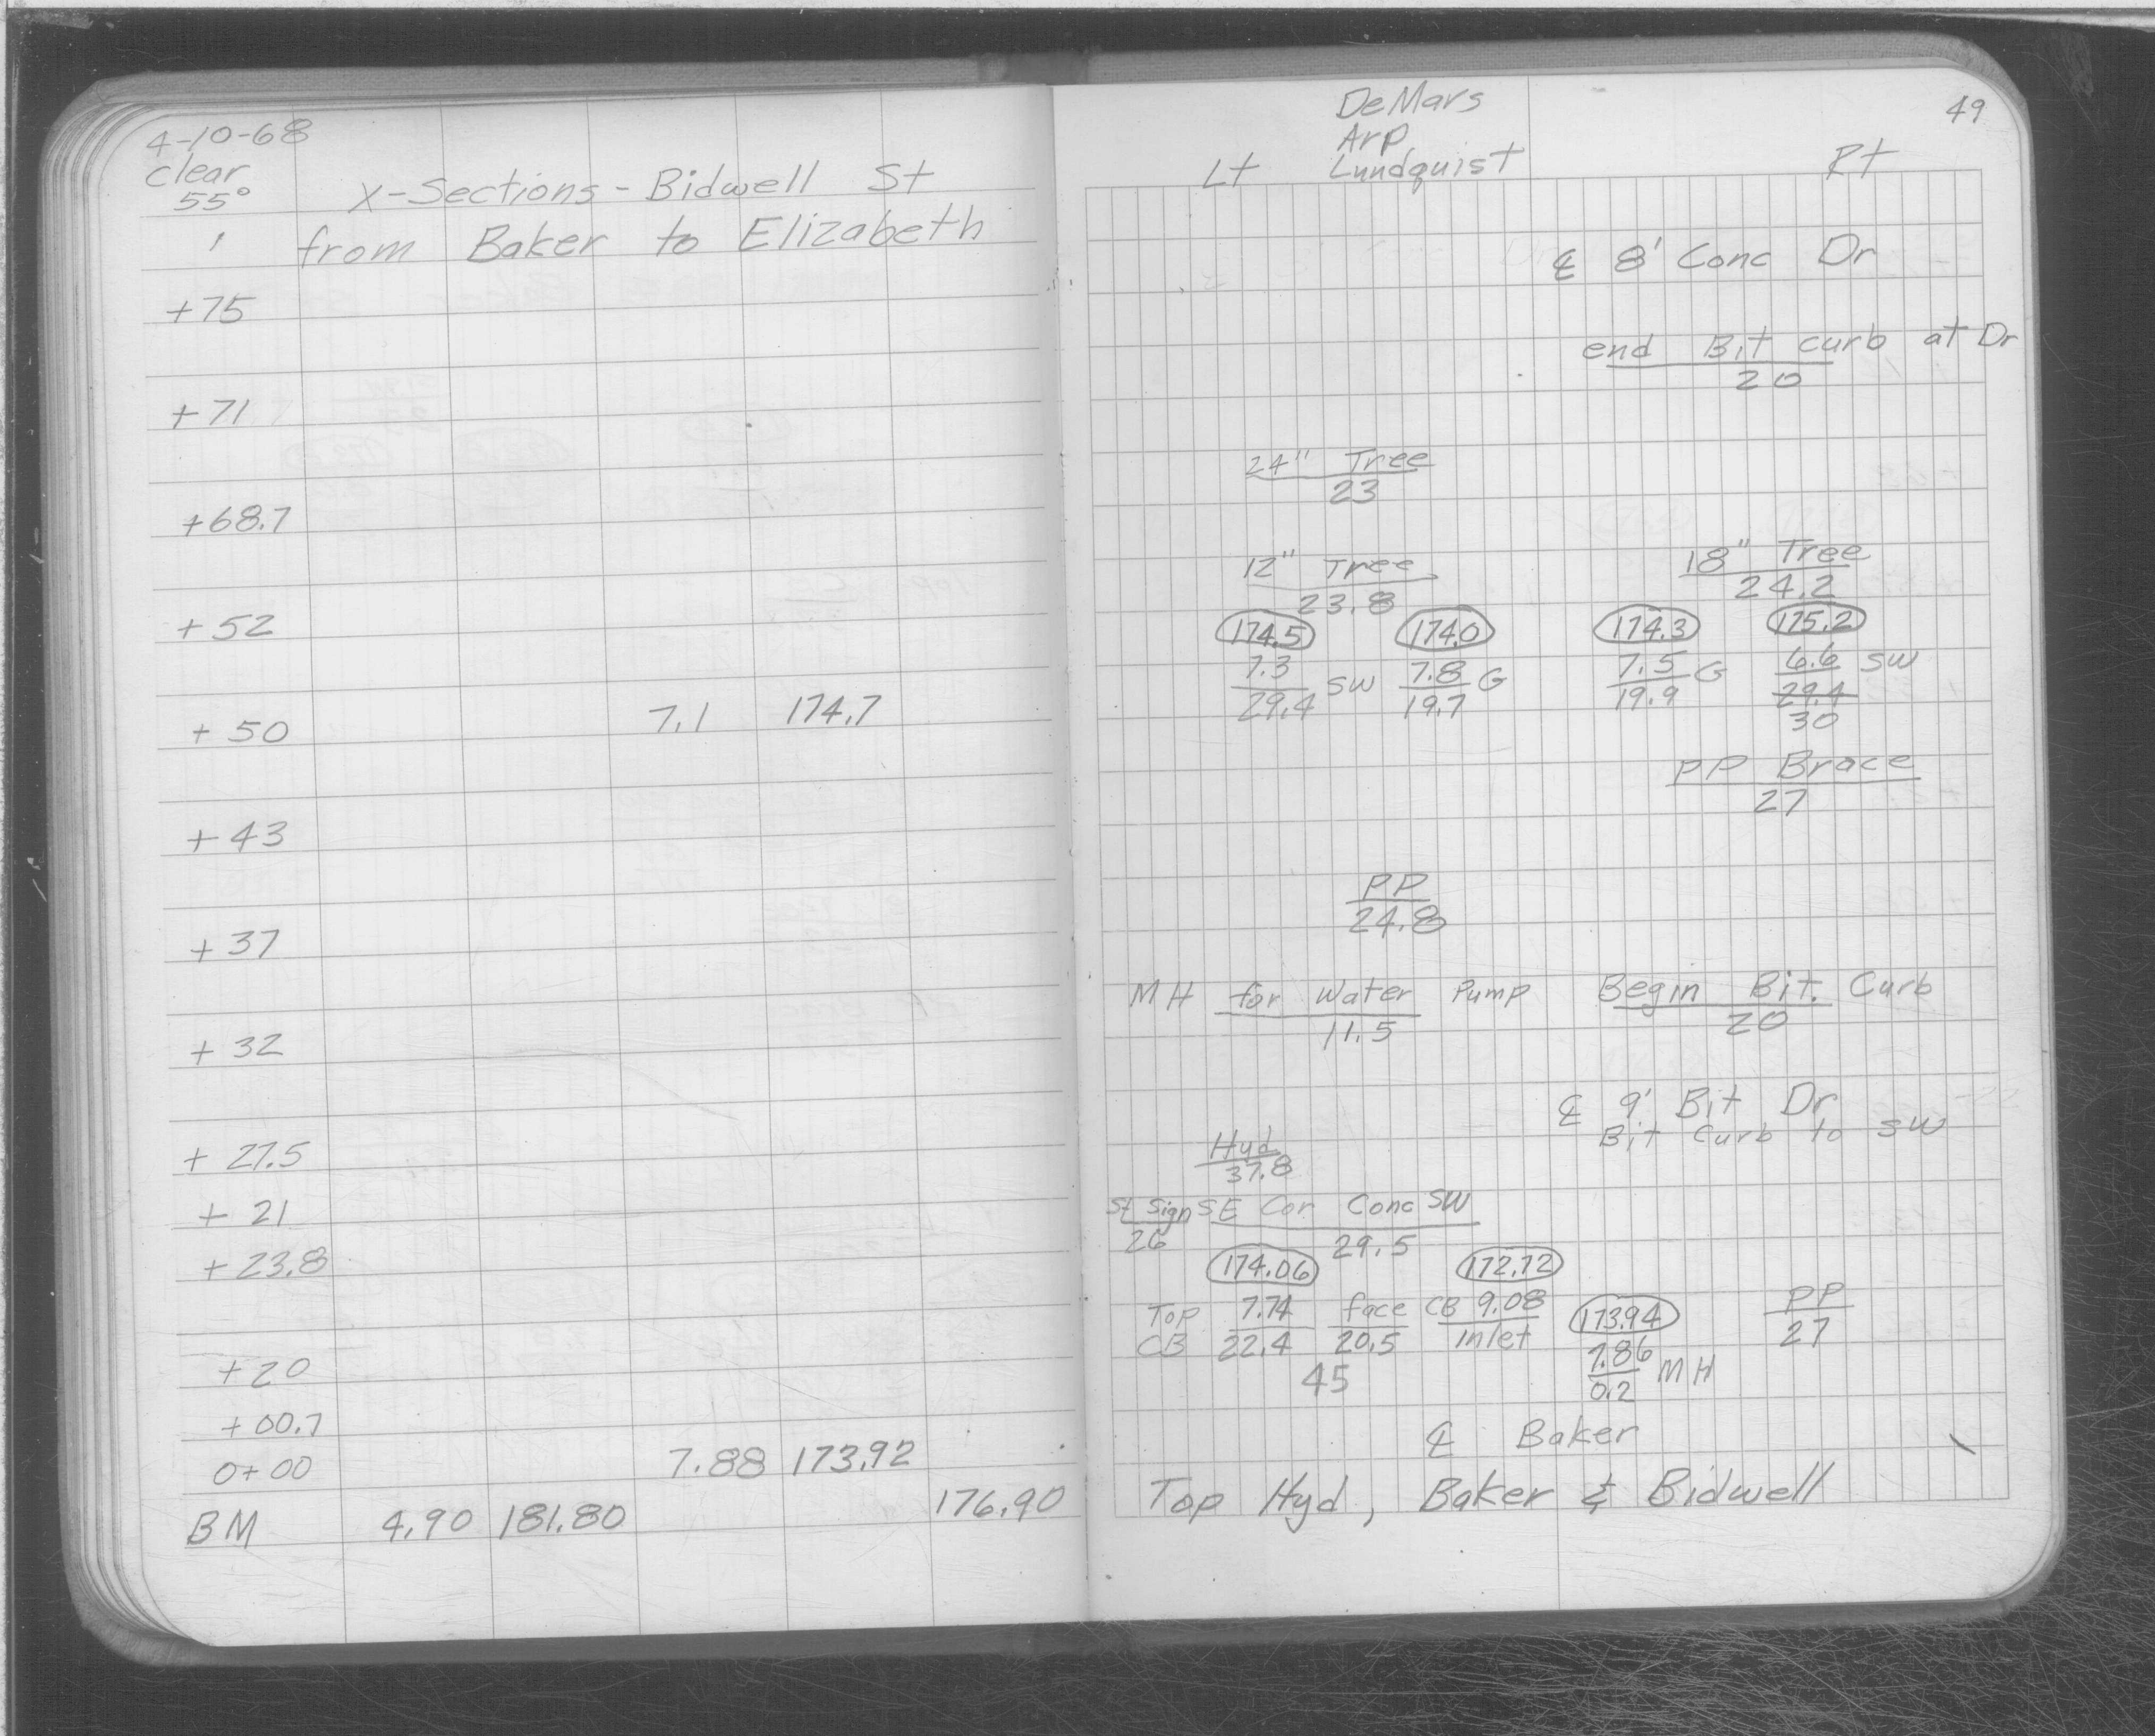 4-10-68
clear
55°
X-Sections - Bidwell St
from Baker to Elizabeth
+75
+71
+68.7
+52
+50 7.1 174.7
+43
+37
+32
+27.5
+21
+23.8
+20
+00.7
0+00 7.88 173.92
BM 4.90 181.80 176.90
49
DeMars
Arp
Lt Lundquist Rt
℄ 8' Conc Dr
end Bit curb at Dr
20
24" Tree
23
12" Tree 18" Tree
23.8 24.2
174.5 174.0 174.3 175.2
7.3 SW 7.8 G 7.5 G 6.6 SW
29.4 19.7 19.9 29.4
30
PP Brace
27
PP
24.8
MH for Water Pump Begin Bit. Curb
11.5 20
℄ 9' Bit Dr
Bit Curb to SW
Hyd
37.8
St Sign SE Cor Conc SW
26 29.5
174.06 172.72
Top 7.74 face CB 9.08 173.94 PP
CB 22.4 20.5 inlet 27
7.86 MH
0.2
45
℄ Baker
Top Hyd, Baker & Bidwell